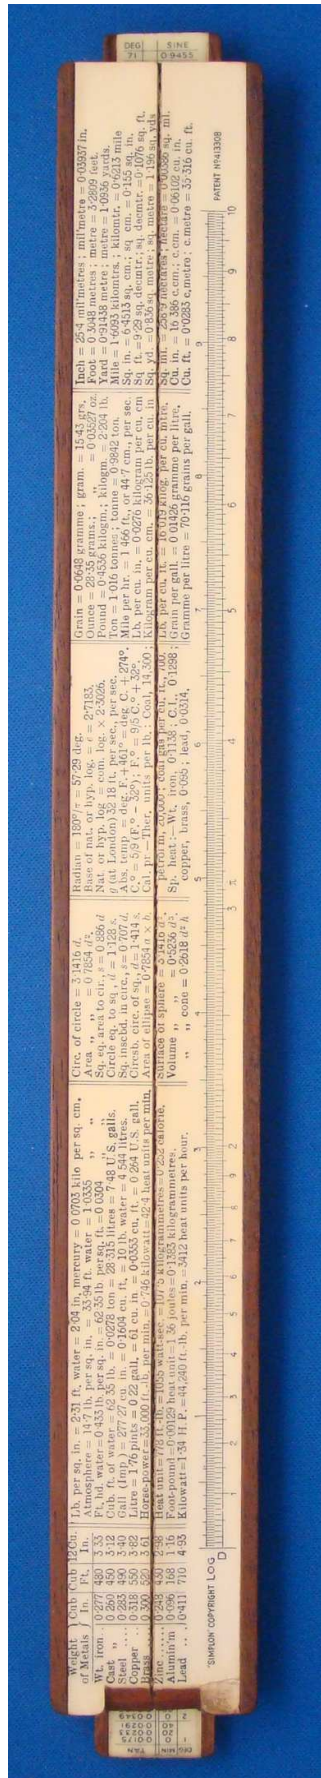 Weight of Metals | Cub In. | Cub Ft. | 12 Cu. In.
Wt. iron .. 0·277 480 3·33
Cast „ .. 0·260 450 3·12
Steel .... 0·283 490 3·40
Copper .. 0·318 550 3·82
Brass .... 0·300 520 3·61
Zinc ...... 0·248 430 2·98
Alumin'm 0·096 168 1·16
Lead .... 0·411 710 4·93
Lb. per sq. in. = 2·31 ft. water = 2·04 in. mercury = 0·0703 kilo per sq. cm.
Atmosphere = 14·7 lb. per sq. in. = 33·94 ft. water = 1·0335 „ „
Ft. hd. water = 0·433 lb. per sq. in. = 62·35 lb per sq. ft. = 0·0304 „ „
Cub. ft. of water = 62·35 lb. = 0·0278 ton = 28·315 litres = 7·48 U.S. galls.
Gall (Imp.) = 277·27 cu. in. = 0·1604 cu. ft. = 10 lb. water = 4·544 litres.
Litre = 1·76 pints = 0·22 gall. = 61 cu. in. = 0·0353 cu. ft. = 0·264 U.S. gall.
Horse-power = 33,000 ft.-lb. per min. = 0·746 kilowatt = 42·4 heat units per min.
Heat unit = 778 ft.-lb. = 1055 watt-sec. = 107·5 kilogrammetres = 0·252 calorie.
Foot-pound = 0·00129 heat unit = 1·36 joules = 0·1383 kilogrammetres.
Kilowatt = 1·34 H.P. = 44,240 ft.-lb. per min. = 3412 heat units per hour.
Circ. of circle = 3·1416 d.
Area „ „ = 0·7854 d².
Sq. eq. area to cir., s = 0·886 d
Circle eq. to sq., d = 1·128 s.
Sq. inscbd. in circ., s = 0·707 d.
Circsb. circ. of sq., d = 1·414 s.
Area of ellipse = 0·7854 a × b.
Surface of sphere = 3·1416 d².
Volume „ „ = 0·5236 d³.
„ „ cone = 0·2618 d² h
Radian = 180°/π = 57·29 deg.
Base of nat. or hyp. log. = e = 2·7183.
Nat. or hyp. log = com. log. × 2·3026.
g (at London) 32·18 ft. per sec., per sec.
Abs. temp = deg. F. + 461° = deg C. + 274°.
C.° = 5/9 (F.° - 32°); F.° = 9/5 C.° + 32°.
Cal. pr.—Ther. units per lb.: Coal, 14,300;
petrol'm, 20,000; coal gas per cu. ft., 700.
Sp. heat :—Wt. iron, 0·1138; C.I., 0·1298;
copper, brass, 0·095; lead, 0·0314.
Grain = 0·0648 gramme; gram. = 15·43 grs.
Ounce = 28·35 grams.; „ = 0·03527 oz.
Pound = 0·4536 kilogm.; kilogm. = 2·204 lb.
Ton = 1·016 tonnes; tonne = 0·9842 ton.
Mile per hr. = 1·466 ft., or 44·7 cm., per sec.
Lb. per cu. in. = 0·0276 kilogram per cu. cm
Kilogram per cu. cm. = 36·125 lb. per cu. in
Lb. per cu. ft. = 16·019 kilog. per cu. mtre.
Grain per gall. = 0·01426 gramme per litre.
Gramme per litre = 70·116 grains per gall.
Inch = 25·4 mil'metres; mil'metre = 0·03937 in.
Foot = 0·3048 metres; metre = 3·2809 feet.
Yard = 0·91438 metre; metre = 1·0936 yards.
Mile = 1·6093 kilomtrs.; kilomtr. = 0·6213 mile
Sq. in. = 6·4513 sq. cm.; sq cm. = 0·155 sq. in.
Sq ft. = 9·29 sq. decmtr.; sq. decmtr. = 0·1076 sq. ft.
Sq. yd. = 0·836 sq. metre; sq. metre = 1·196 sq. yds
Sq. mi. = 258·9 hectares; hectare = 0·00386 sq. mi.
Cu. in. = 16·386 c.cm.; c.cm. = 0·06102 cu. in.
Cu. ft. = 0·0283 c.metre; c.metre = 35·316 cu. ft.
"SIMPLON" COPYRIGHT LOG
D
1 2 3 4 5 6 7 8 9 10
1 2 3 π 4 5 6 7 8 9 10
PATENT Nº 413308
DEG SINE
71 0·9455
DEG MIN TAN
1 0 0·0175
20 0·0233
40 0·0291
2 0 0·0349